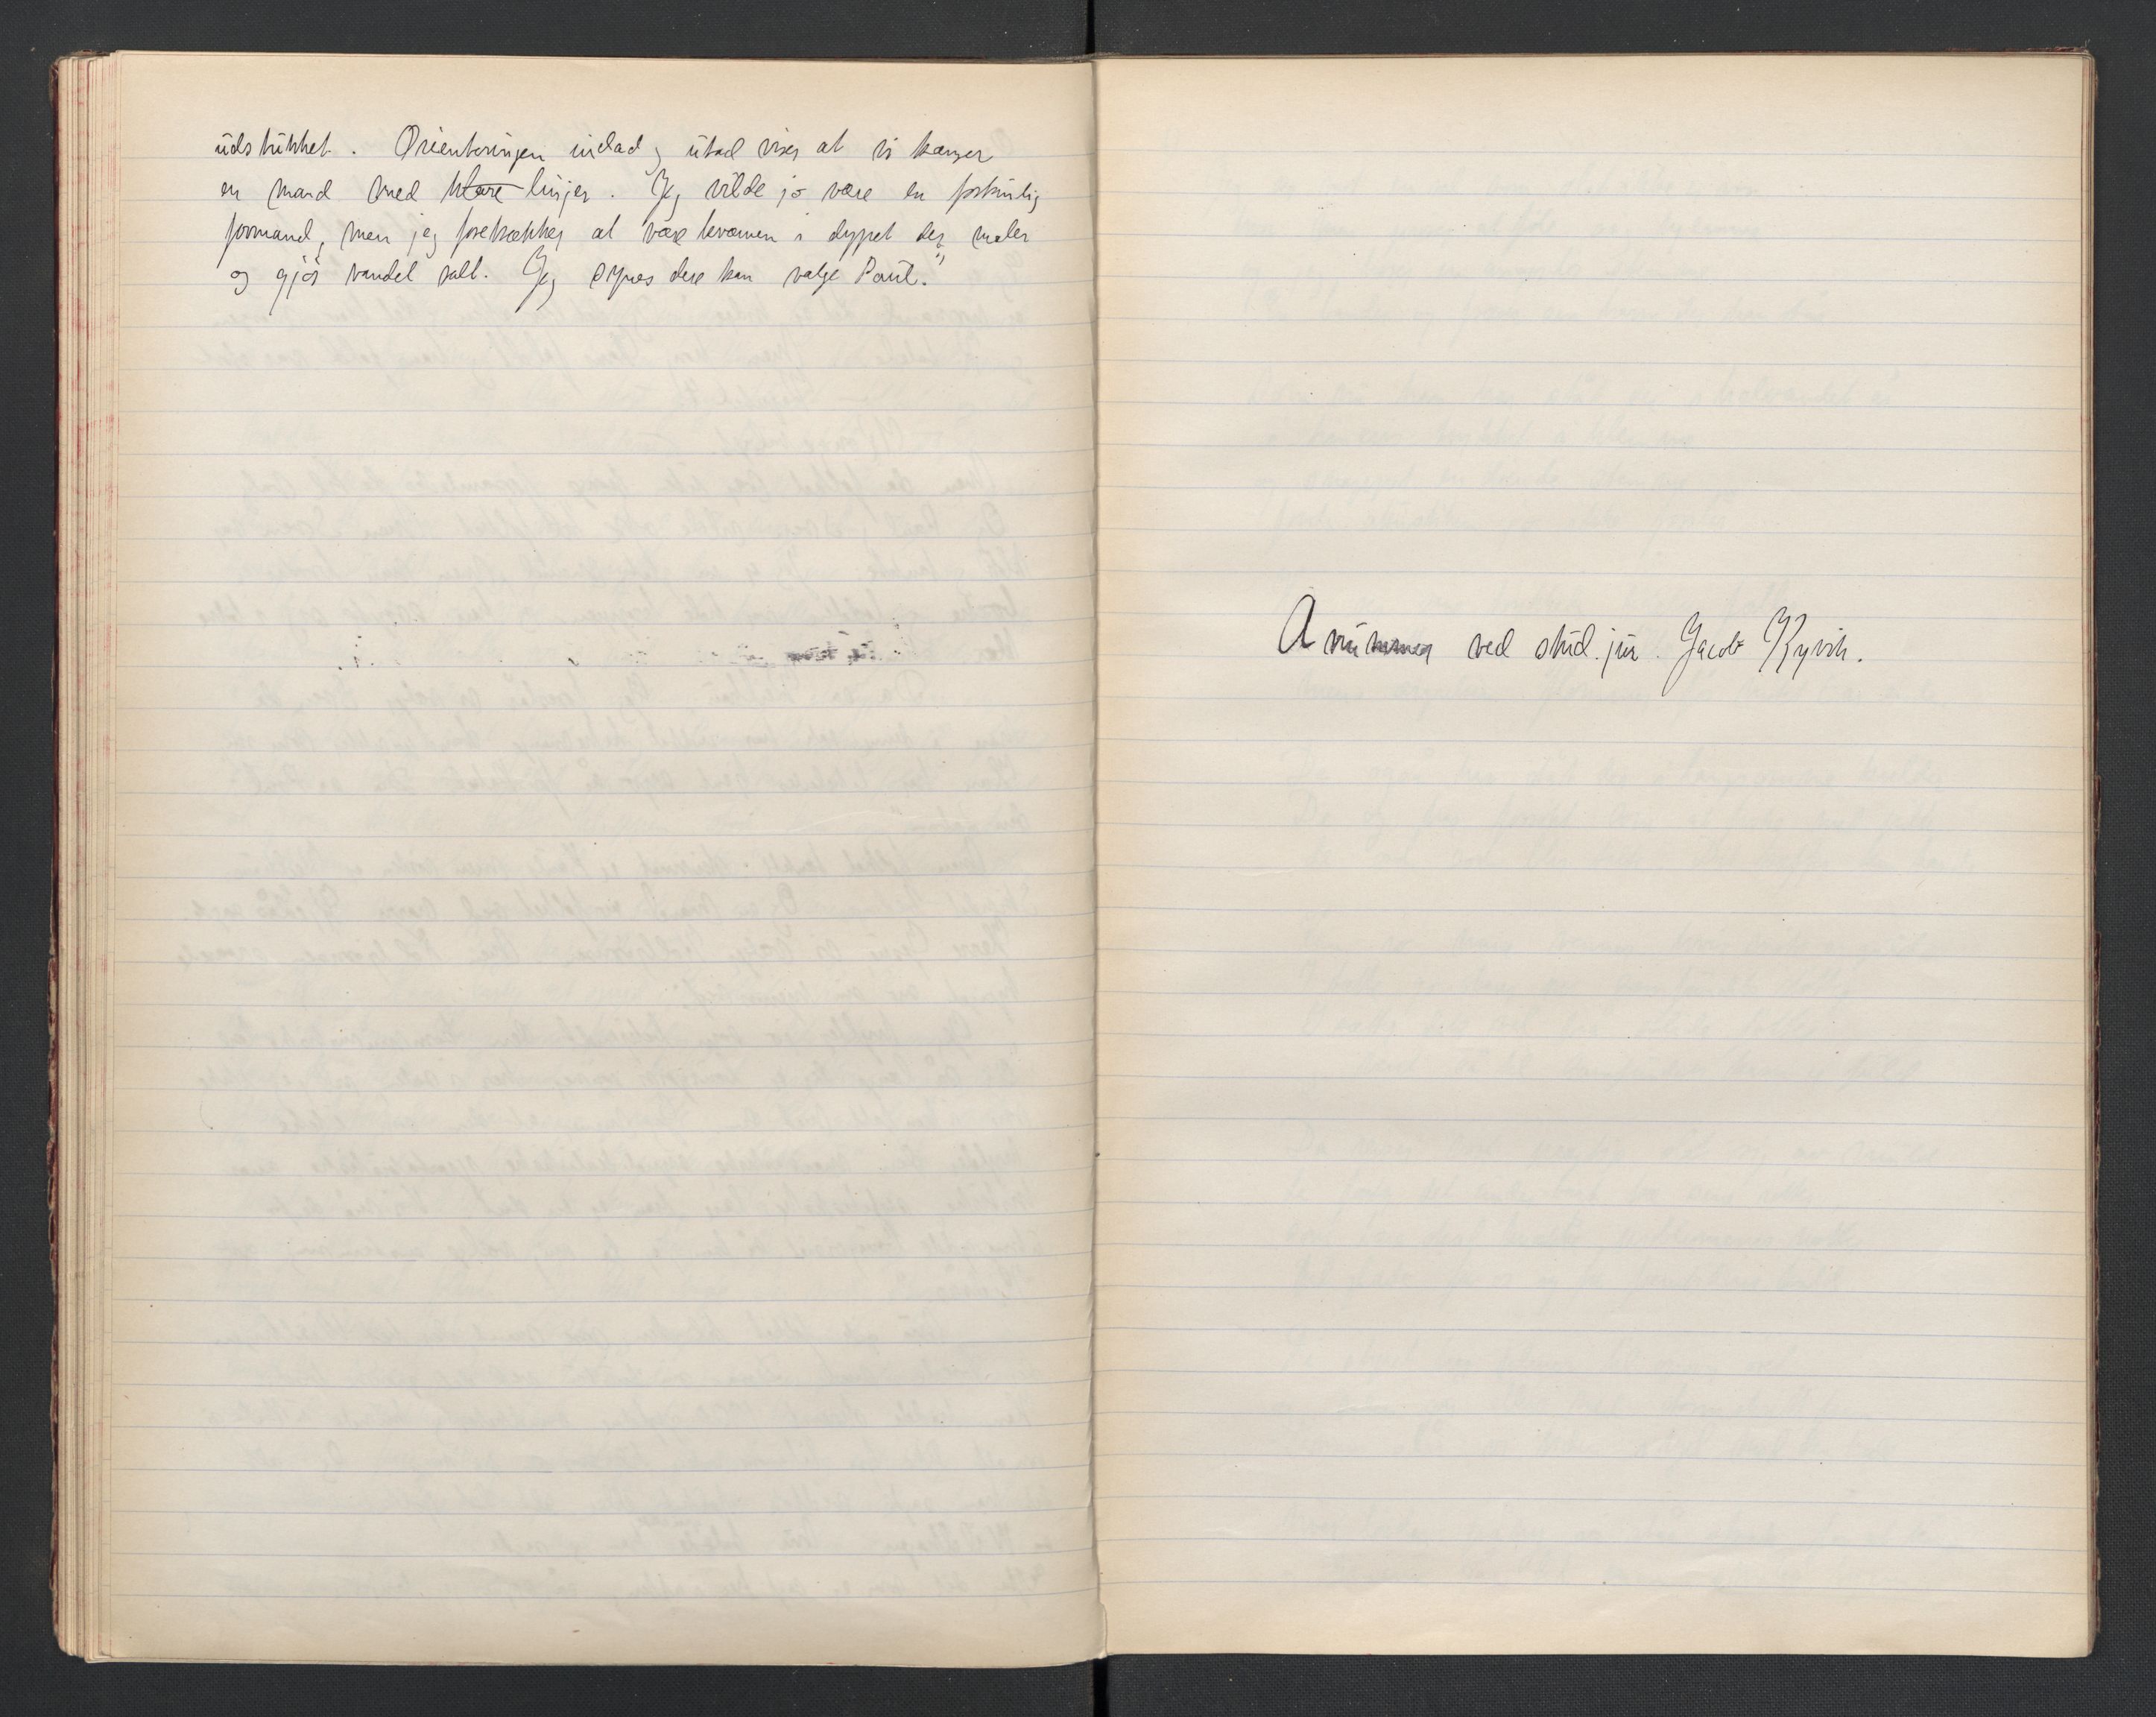 üdstükket. Orienteringen indad og ütad viser at vi trænger
en mand med klare linjer. Jeg vilde jo være en
formand, men jeg foretrækker at være kværnen i dypet der maler
og gjør vandet salt. Jeg synes dere kan vælge Paul."
Avissummer ved stüd. jür. Jacob Ryvik.